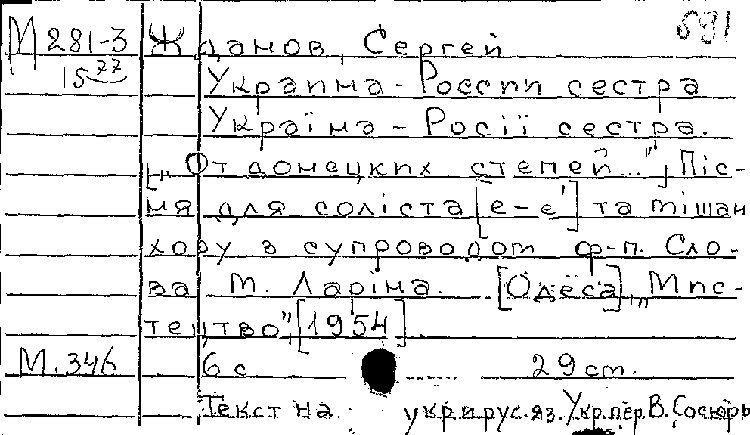 М 281-3 Жданов, Сергей 691
15 77
Украина - России сестра
Україна - Росії сестра.
[„От донецких степей..."] Піс-
ня для соліста [e-e'] та мішан
хору з супроводом ф-п. Сло-
ва М. Ларіна. [Одеса], „Мис-
тецтво", [1954].
М. 346 6 с 29 cm.
Текст на укр. и рус. яз. Укр. пер. В. Сосюры